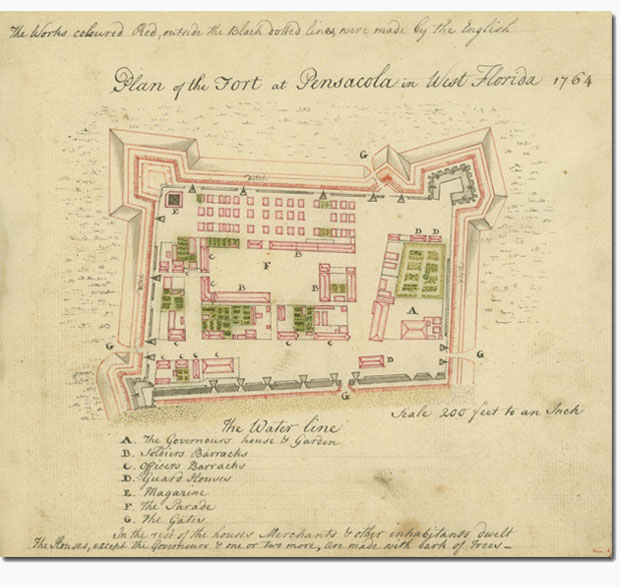 The Works coloured Red, outside the Black dotted lines, were made by the English
Plan of the Fort at Pensacola in West Florida 1764
G
ditch
A
A
A
A
E
D D
C
B
F
C
B
B
A
G
G
C
C
C
D
G
Scale 200 feet to an Inch
The Water line
A. The Governours house & Garden
B. Soldiers Barracks
C. Officers Barracks
D. Guard Houses
E. Magazine
F. The Parade
G. The Gates
In the rest of the houses Merchants & other inhabitants dwelt
The Houses, except the Governours & one or two more, are made with bark of Trees_